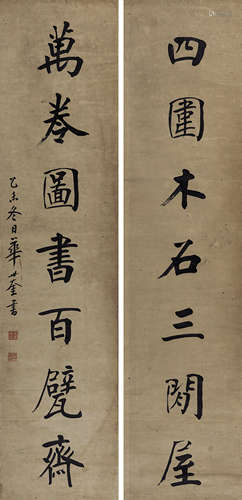 四圍木石三閒屋
萬卷圖書百甓齋
乙未冬日華世奎書